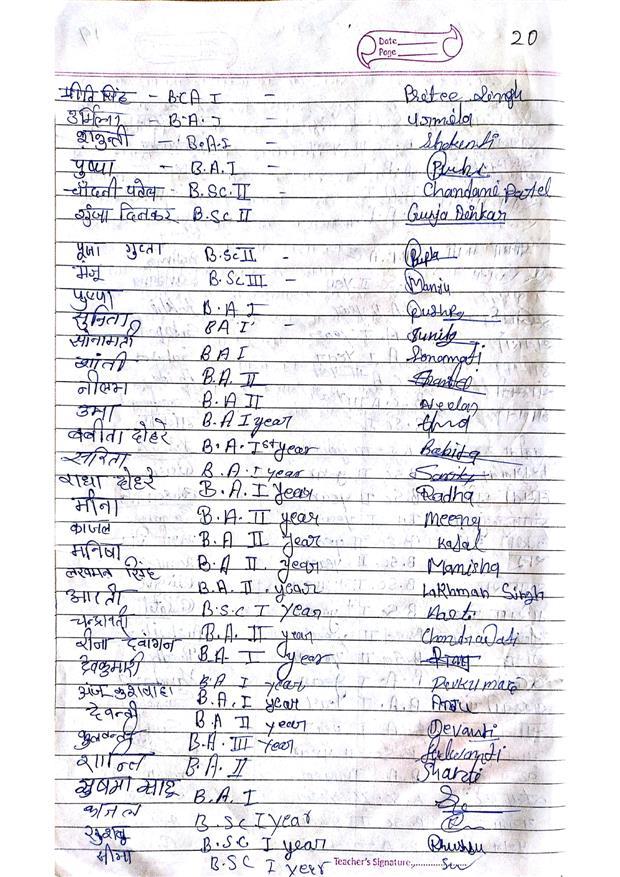 Date
20
Page
प्रीति सिंह - BCA I - Pretee Singh
उर्मिला - B.A. I - Urmila
शकुन्ती - B.A.I - Shakunti
पुष्पा - B.A.I -
चाँदनी पटेल - B.Sc.II - Chandani Patel
गुंजा दिनकर B.Sc II Gunja Dinkar
पूजा गुप्ता B.Sc II -
मंजू B.Sc III - Manju
पुष्पा B.A I Pushpa
सुनिता BA I - Sunita
सोनामती B A I Sonamati
शांती B.A. II Shanti
नीलम B.A II Neelam
उमा B.A I year Uma
बबीता दोहरे B.A. Ist year Babita
सरिता B.A. I year Sarita
राधा दोहरे B.A. I Year Radha
मीना B.A. II year Meena
काजल B.A II Year Kajal
मनिषा B.A II year Manisha
लखमन सिंह B.A. II. year Lakhman Singh
आरती B.S.C I Year Aarti
चन्द्रावती B.A. II year Chandrawati
रीना देवांगन B.A. I year
देवकुमारी B.A I year Devkumari
अंजू कुशवाहा B.A. I year Anju
देवन्ती B.A II year Devanti
कुलवन्ती B.A. III year Kulwanti
शान्ति B.A. II Shanti
सुषमा साहू B.A. I
काजल B.Sc I Year
खुशबु B.SC I year Khushbu
सीमा B.SC I Year
Teacher's Signature